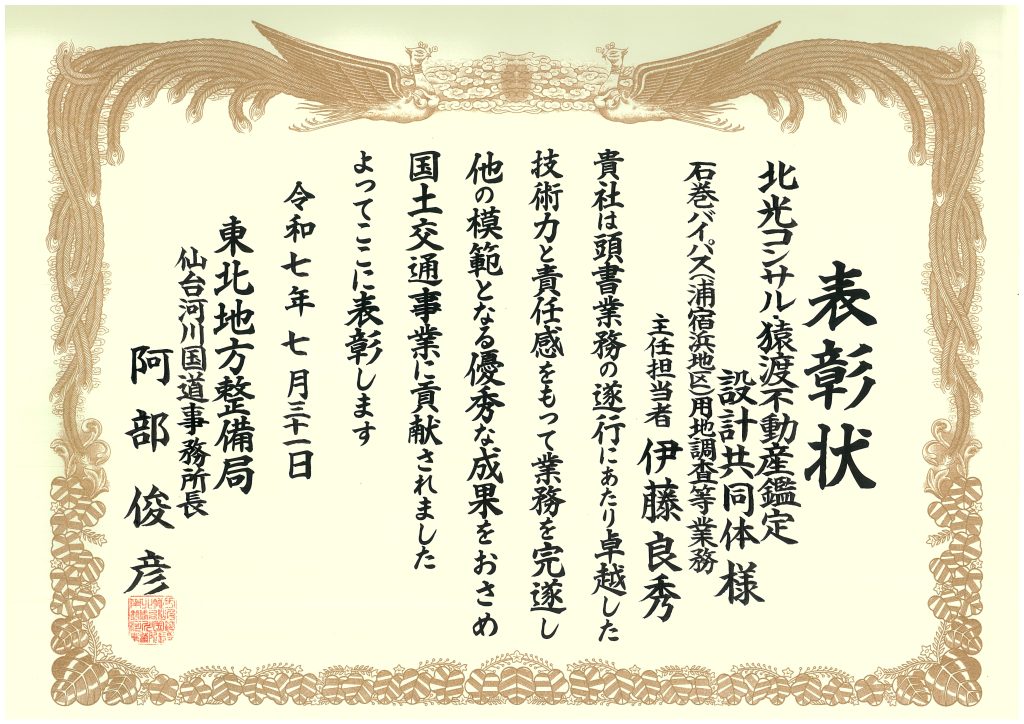 表彰状
北光コンサル・猿渡不動産鑑定
設計共同体 様
石巻バイパス(浦宿浜地区)用地調査等業務
主任担当者 伊藤良秀
貴社は頭書業務の遂行にあたり卓越した
技術力と責任感をもって業務を完遂し
他の模範となる優秀な成果をおさめ
国土交通事業に貢献されました
よってここに表彰します
令和七年七月三十一日
東北地方整備局
仙台河川国道事務所長
阿部俊彦